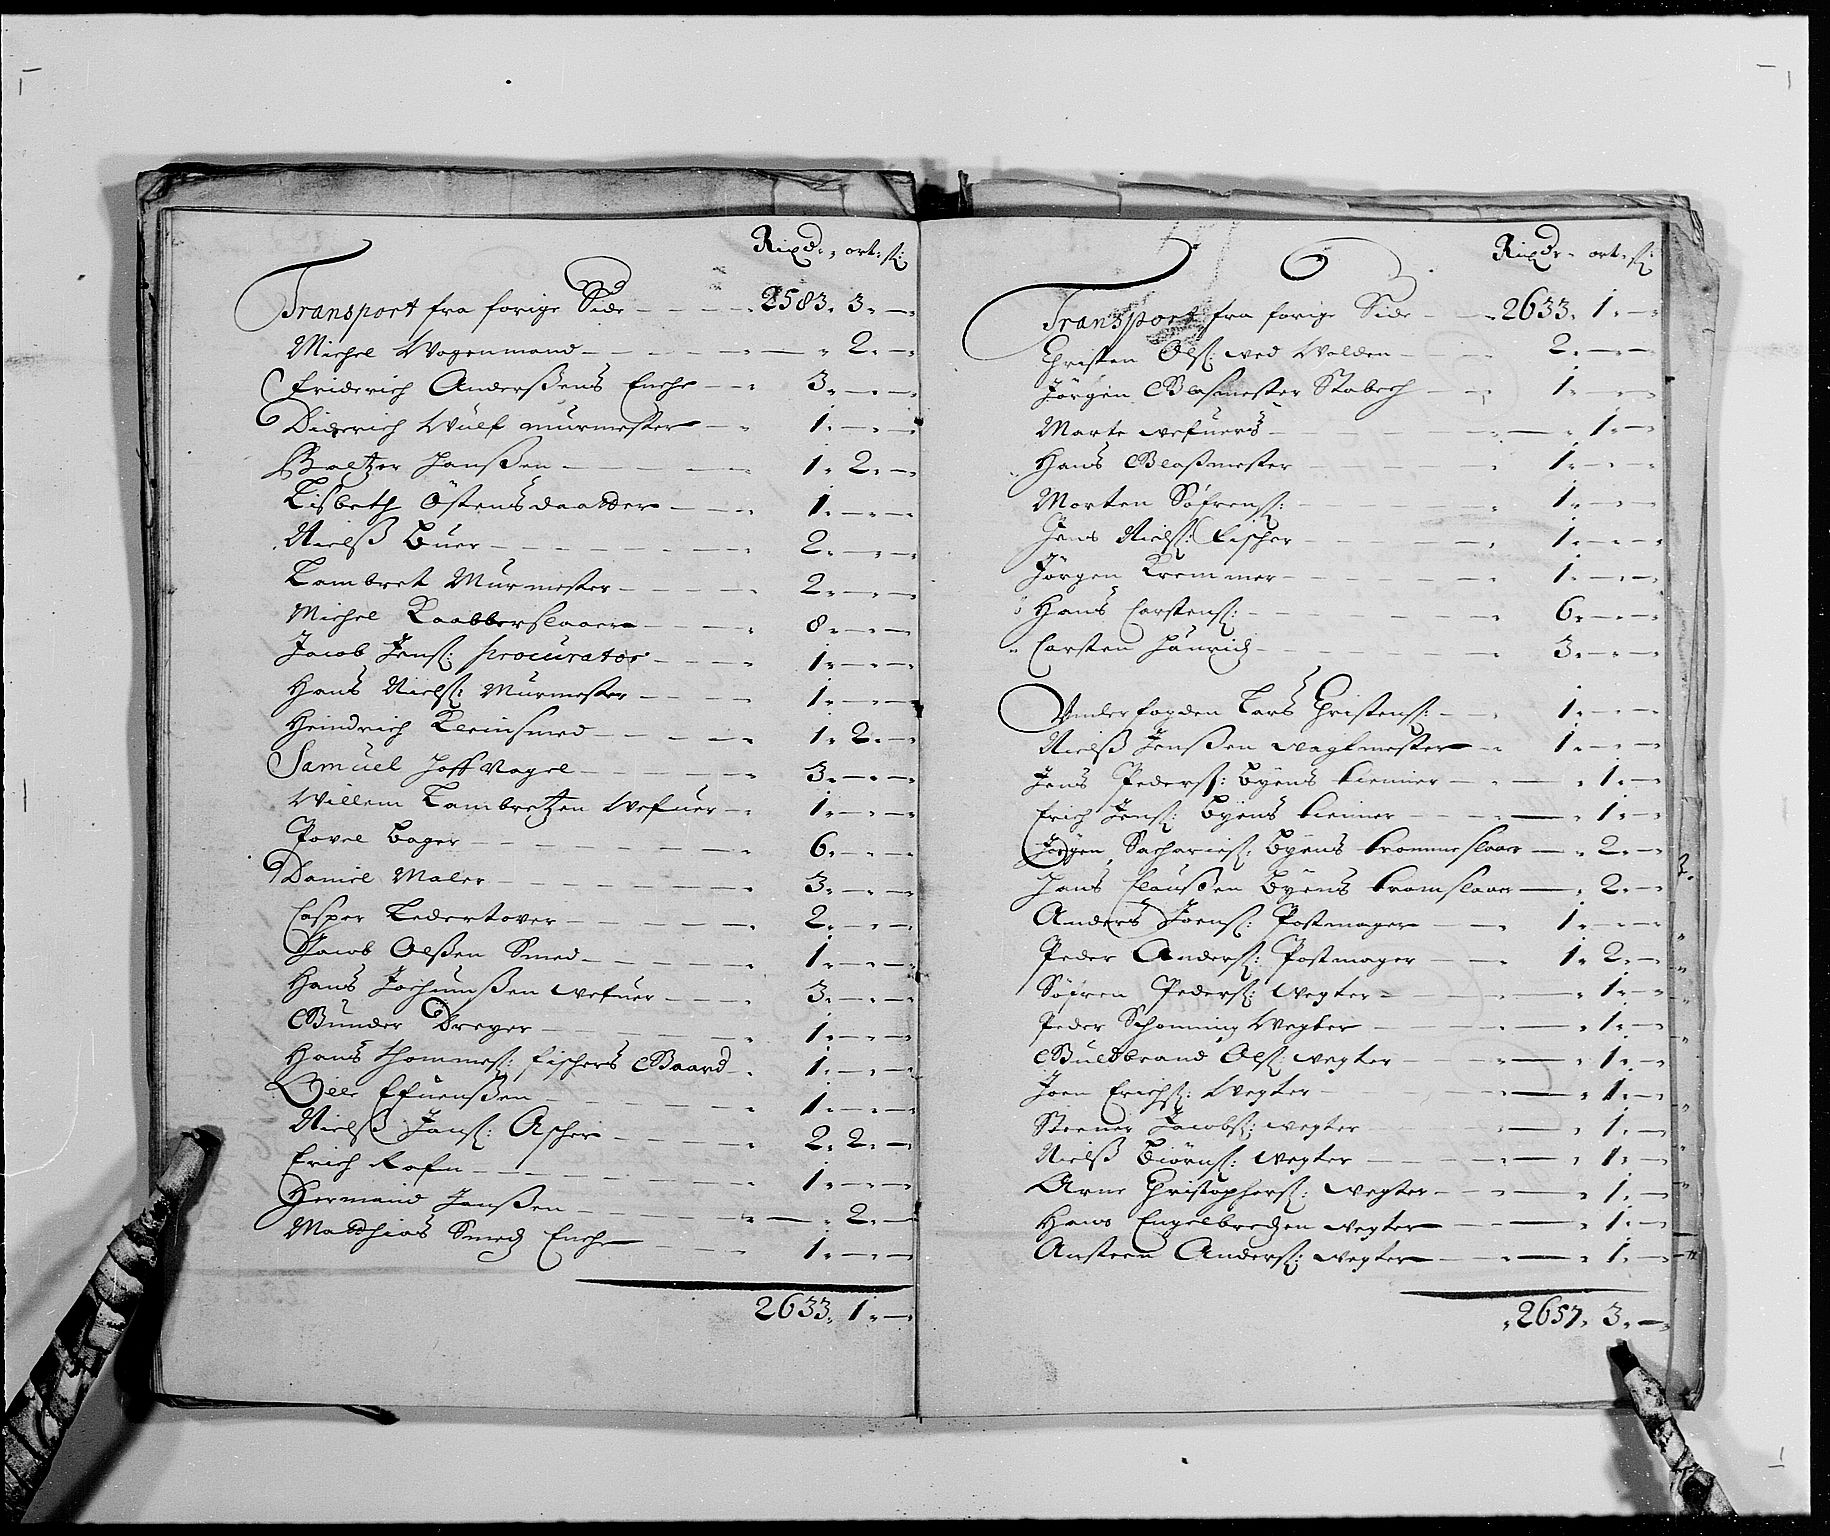 Rixdr. ort. sk:
Transport fra forige Side - - - 2583. 3. -
Michel Wognmand - - - - 2. -
Friderich Anderßens Enche - - 3. - -
Diderich Wulf murmester - - 1. - -
Baltzer Janßen - - - 1. 2. -
Lisbeth Östensdaatter - - - 1. - -
Nielß Buer - - - 2. - -
Lambret Murmester - - - 2. - -
Michel Kaabberslaaer - - - 8. - -
Jacob Jens: procurator - - - 1. - -
Hans Niels: Murmester - - - 1. - -
Heindrich Kleinsmed - - - 1. 2. -
Samuel Hoff Nagel - - - 3. - -
Willem Lambretzen Wefuer - 1. - -
Povel Bager - - - 6. - -
Daniel Maler - - - 3. - -
Casper Ledertover - - - 2. - -
Jacob Olßen Smed - - - 1. - -
Hans Jochumßen wefuer - - - 3. - -
Gunder Dreyer - - - 1. - -
Hans Thommes: fischers Gaard - 1. - -
Olle Efuenßen - - - 1. - -
Nielß Jans: Ascher - - - 2. 2. -
Erich Rofn - - - 1. - -
Hermand Janßen - - - 2. -
Matthias Smeds Enche - - - 1. - -
2633. 1. -
Rixdr. ort. sk:
Transport fra forige Side - - 2633. 1. -
Christen Ols: ved Volden - - 2. - -
Jörgen Glasmester Stabech - - 1. - -
Marte wefuers - - - 1. -
Hans Glaßmester - - - 1. - -
Morten Söfrens: - - - 1. - -
Jens Niels: Fischer - - - 1. - -
Jörgen Kremmer - - - 1. - -
Hans Carstens: - - - 6. - -
Carsten Hänrich - - - 3. - -
Underfogden Lars Christens: - - 1. - -
Nielß Jenßen vagtmester - - 1. - -
Jens Peders: Byens tienner - - - 1. -
Erich Jens: Byens tienner - - - 1. -
Jörgen Sacharies: Byens trommeslaar - 2. -
Hans Claußen Byens tromslaar - 2. -
Anders Joens: Postmager - - 1. - -
Peder Anders: Postmager - - 1. 2. -
Söfren Peders: Wegter - - - 1. -
Peder Schonning Wegter - - - 1. -
Guldbrand Ols: wegter - - - 1. -
Joen Erichs: Wegter - - - 1. -
Steener Jacobs: wegter - - - 1. -
Nielß Biörns: wegter - - - 1. -
Arne Christophers: wegter - - - 1. -
Hans Engelbredzen wegter - - - 1. -
Ansteen Anders: wegter - - - 1. -
2657. 3. -